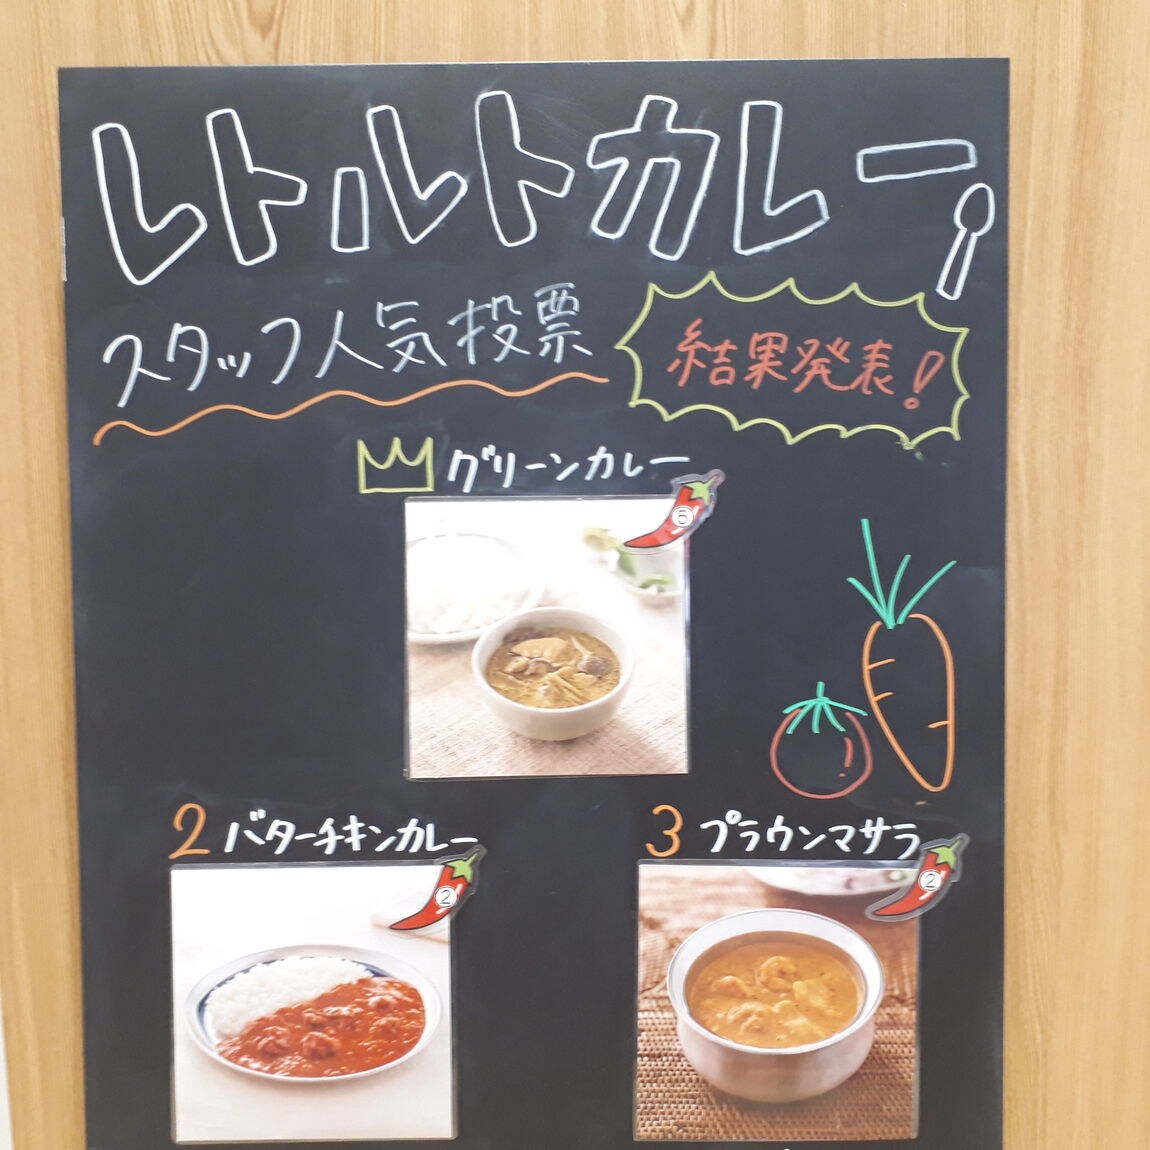 レトルトカレー
スタッフ人気投票
結果発表!
グリーンカレー
5
2 バターチキンカレー
2
3 プラウンマサラ
2